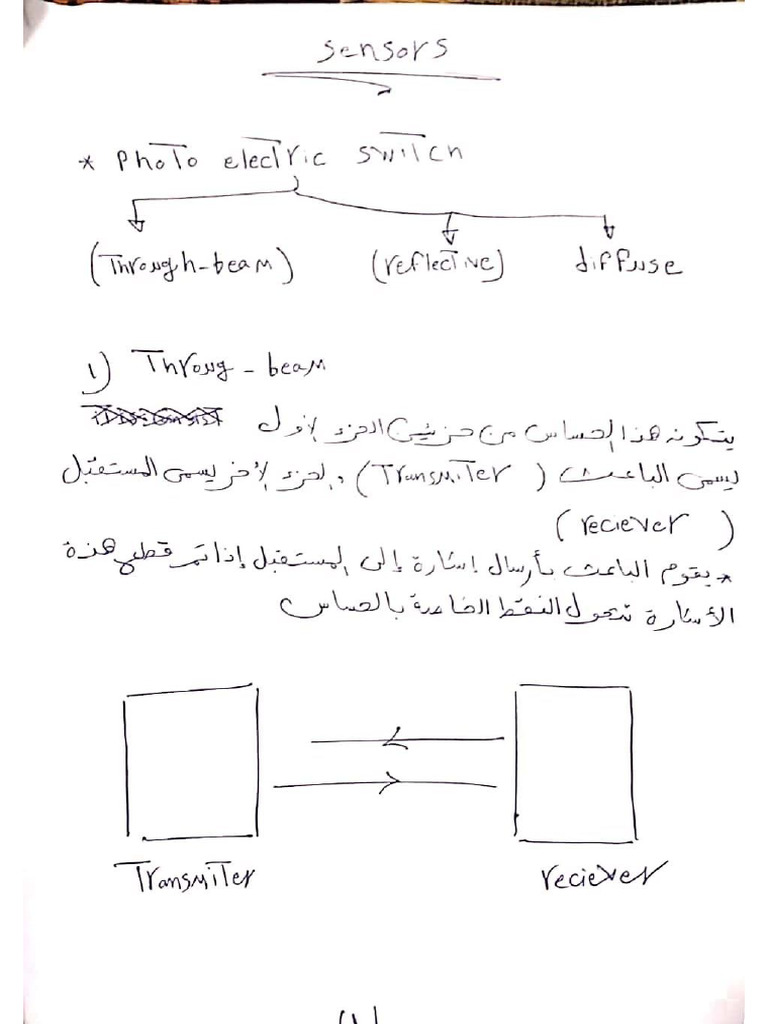 sensors
* Photo electric switch
(Through-beam) (reflective) diffuse
1) Throug - beam
يتكون هذا الحساس من جزئين الجزء الأول
يسمى الباعث (Transmiter) والجزء الأخر يسمى المستقبل
(reciever)
* يقوم الباعث بأرسال إشارة إلى المستقبل إذا تم قطع هذة
الأشارة تتحول النقط الخاصة بالحساس
Transmiter reciever